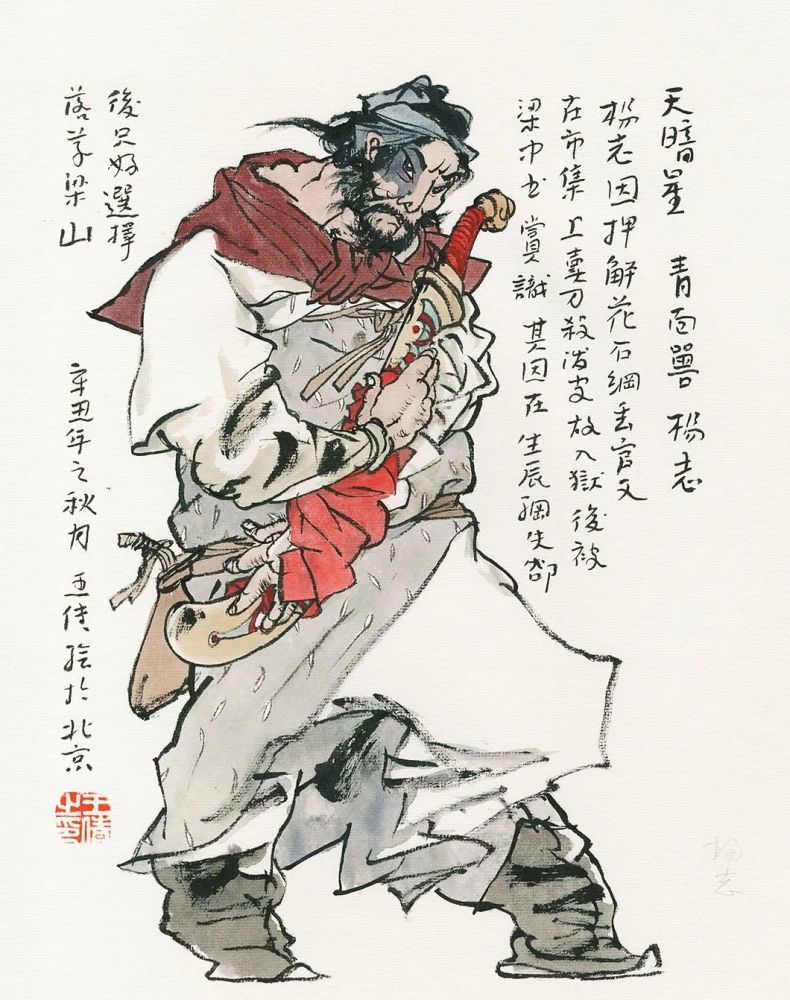 天暗星 青面兽 杨志
杨志因押解花石綱丢官又
在市集上賣刀殺泼皮放入獄後被
梁中书賞識 其因在生辰綱失卻
後只好選擇
落草梁山
辛丑年之秋月 王倩绘於北京
王倩之印
杨志